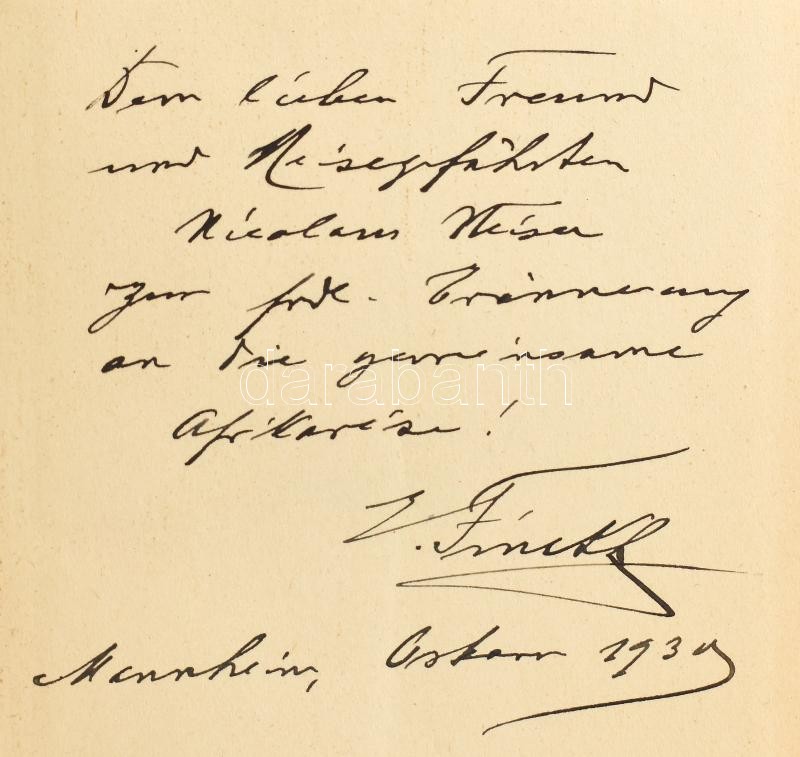 Dem lieben Freund
und Reisegefährten
Nicolaus Weiser
zur frdl. Erinnerung
an die gemeinsame
Afrikareise!
darabanth
Mannheim, Ostern 1930